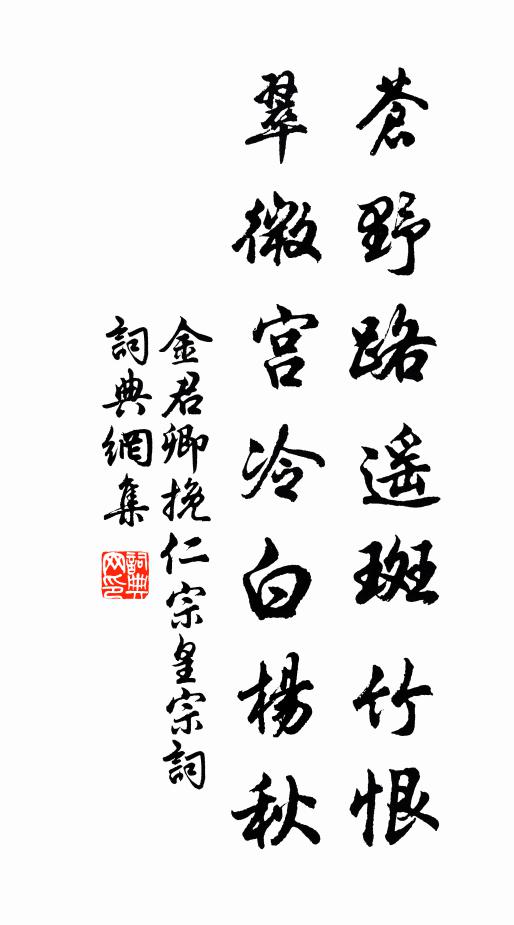 蒼野路遥斑竹恨
翠微宫冷白楊秋
金君卿挽仁宗皇宗詞
詞典網集
詞典網印